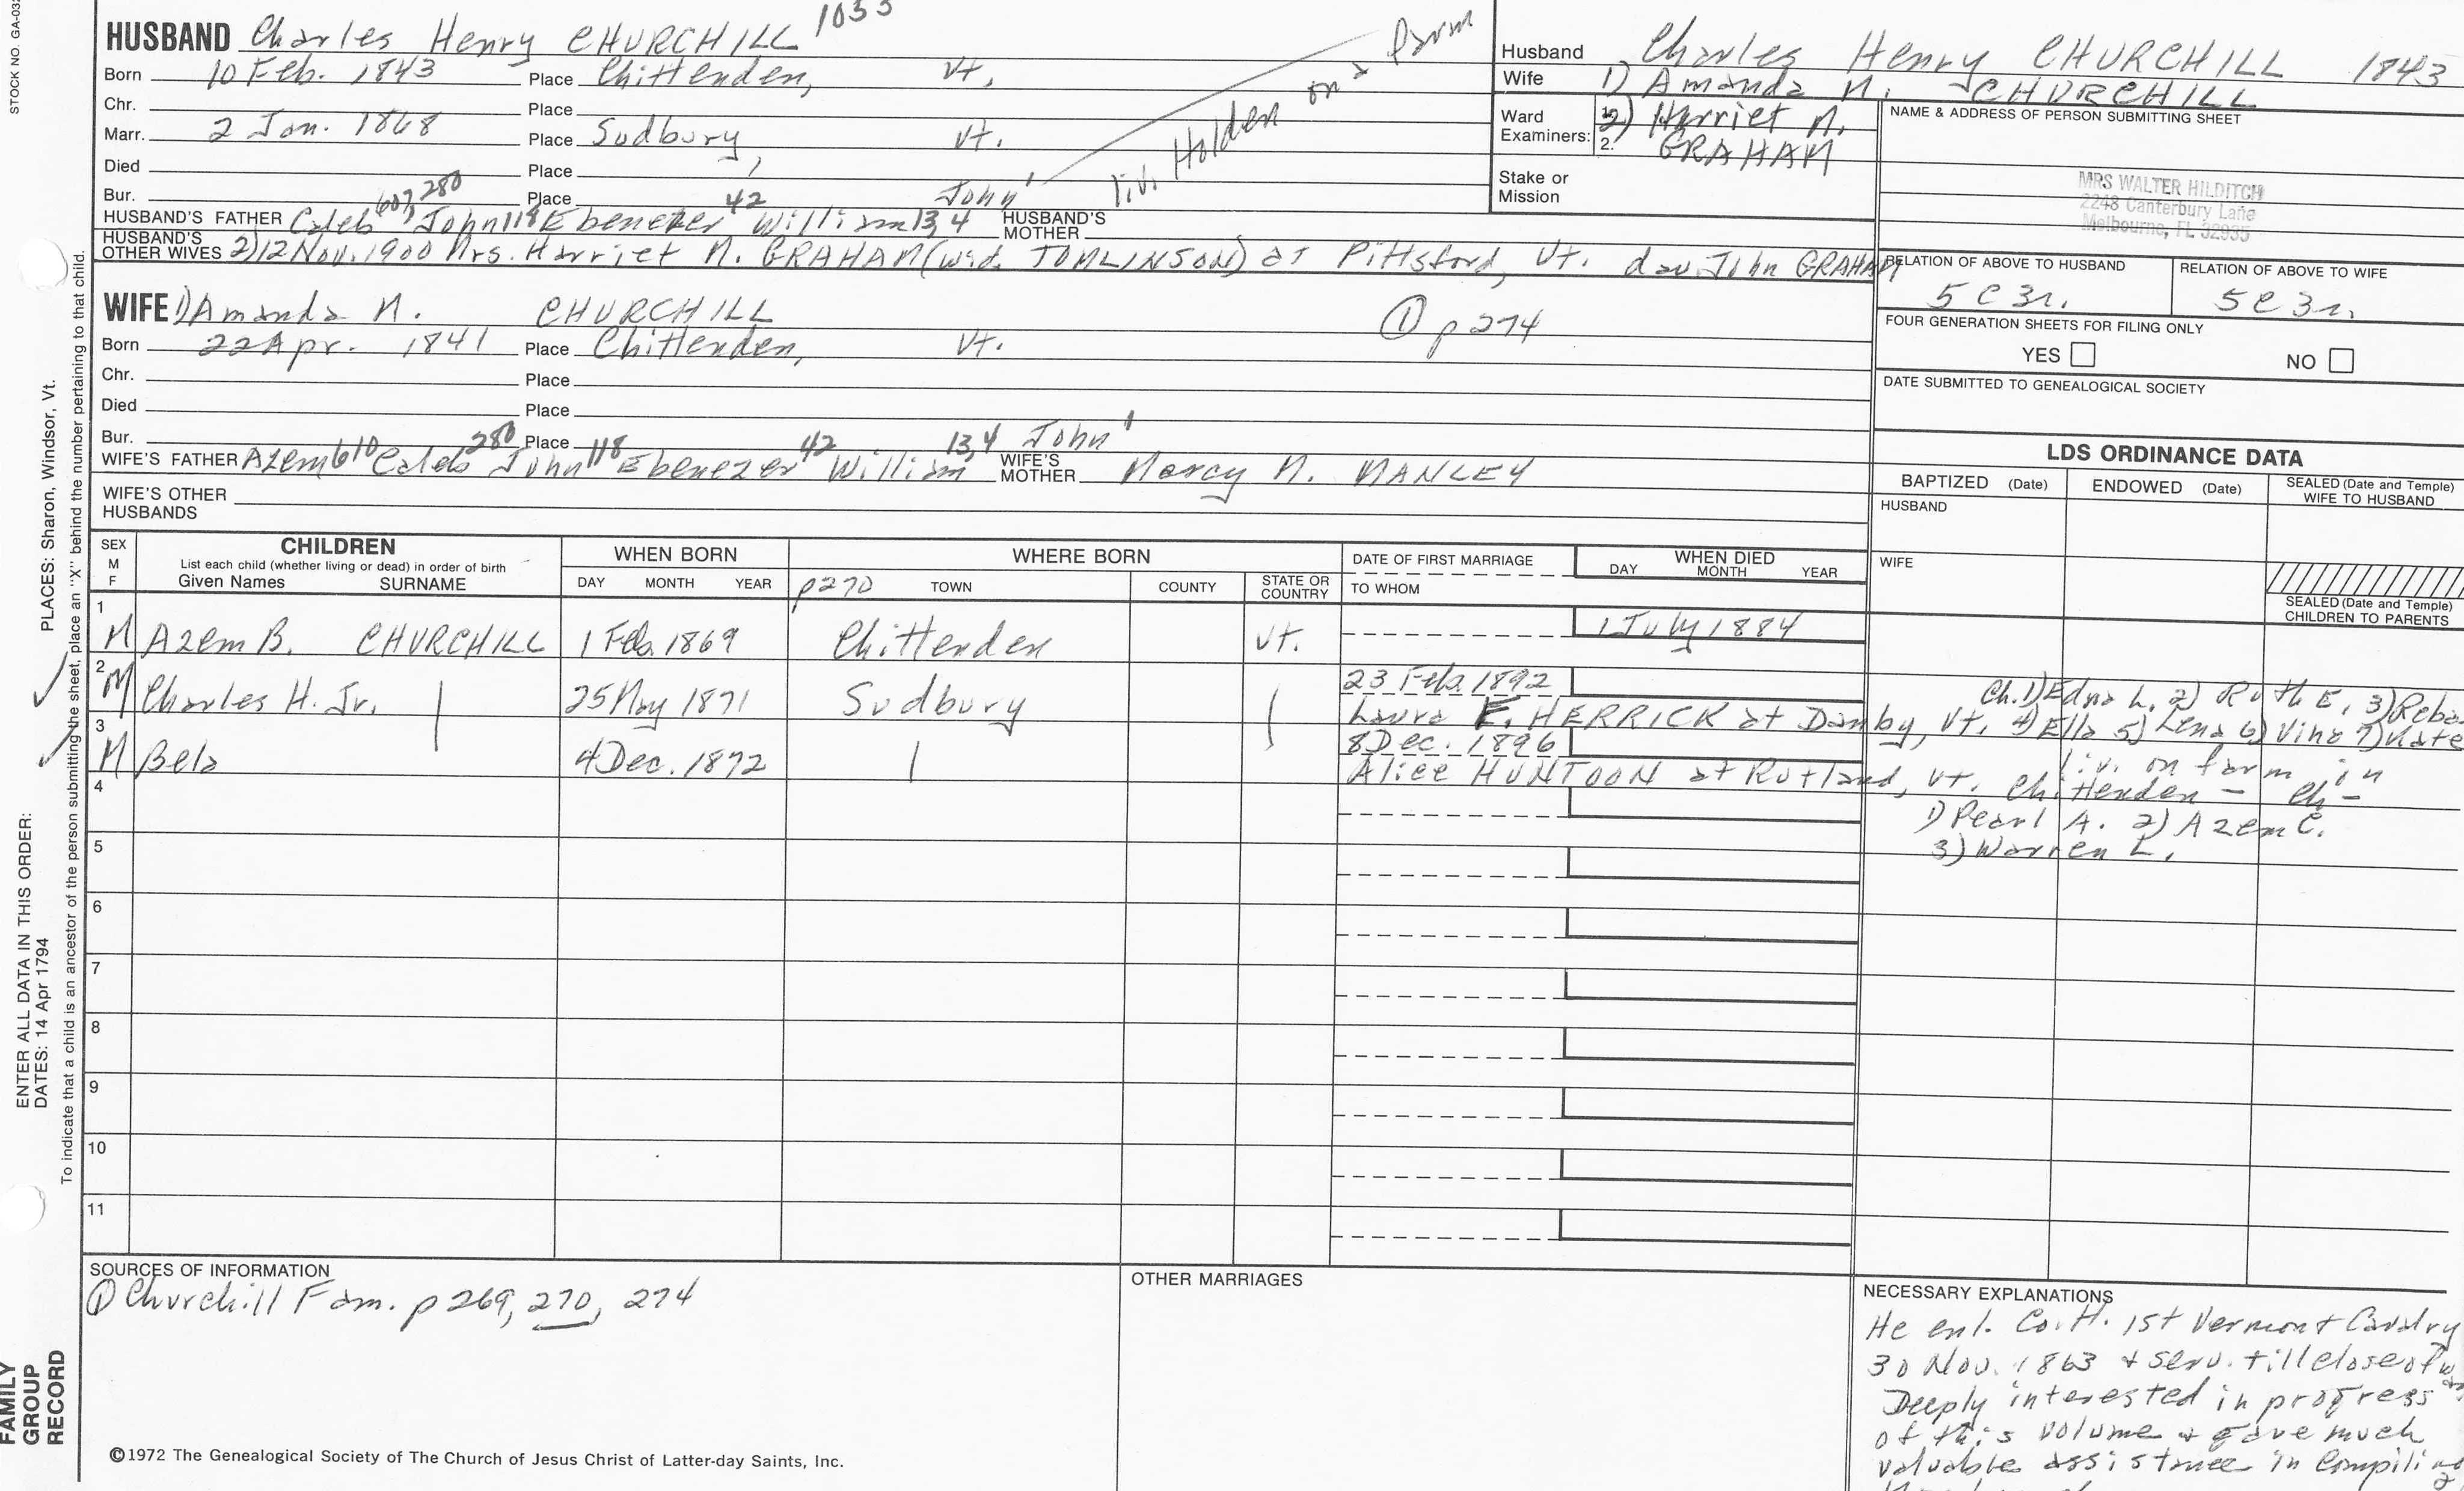 STOCK NO. GA-033
HUSBAND Charles Henry CHURCHILL 1033
Born 10 Feb. 1843 Place Chittenden, Vt.
Chr. Place
Marr. 2 Jan. 1868 Place Sudbury, Vt.
Died Place
Bur. Place
liv. Holden on a farm
HUSBAND'S FATHER Caleb 607, John 280 Ebenezer 118 William 42 13,4 John 1 HUSBAND'S MOTHER
HUSBAND'S OTHER WIVES 2) 12 Nov. 1900 Mrs. Harriet N. GRAHAM (wid. TOMLINSON) at Pittsford, Vt. dau. John GRAHAM
WIFE 1) Amanda N. CHURCHILL ① p 274
Born 22 Apr. 1841 Place Chittenden, Vt.
Chr. Place
Died Place
Bur. Place
WIFE'S FATHER Azem 610 Caleb 280 John 118 Ebenezer 42 William 13,4 John 1 WIFE'S MOTHER Marcy N. MANLEY
WIFE'S OTHER HUSBANDS
Husband Charles Henry CHURCHILL 1843
Wife 1) Amanda N. CHURCHILL
Ward Examiners: 1. 2. 2) Harriet N. GRAHAM
Stake or Mission
NAME & ADDRESS OF PERSON SUBMITTING SHEET
MRS WALTER HILDITCH
2248 Canterbury Lane
Melbourne, FL 32935
RELATION OF ABOVE TO HUSBAND RELATION OF ABOVE TO WIFE
5 c 3 r. 5 c 3 r.
FOUR GENERATION SHEETS FOR FILING ONLY
YES NO
DATE SUBMITTED TO GENEALOGICAL SOCIETY
LDS ORDINANCE DATA
BAPTIZED (Date) ENDOWED (Date) SEALED (Date and Temple) WIFE TO HUSBAND
HUSBAND
WIFE
SEALED (Date and Temple) CHILDREN TO PARENTS
SEX M F CHILDREN List each child (whether living or dead) in order of birth Given Names SURNAME
WHEN BORN DAY MONTH YEAR
WHERE BORN p270 TOWN COUNTY STATE OR COUNTRY
DATE OF FIRST MARRIAGE TO WHOM
WHEN DIED DAY MONTH YEAR
1 M Azem B. CHURCHILL 1 Feb. 1869 Chittenden Vt. 1 July 1884
2 M Charles H. Jr. 25 May 1871 Sudbury 23 Feb. 1892
Laura E. HERRICK at Danby, Vt.
Ch. 1) Edna L. 2) Ruth E. 3) Reba
4) Ella 5) Lena 6) Vina 7) Kate
3 M Bela 4 Dec. 1872 8 Dec. 1896
Alice HUNTOON at Rutland, Vt.
liv. on farm in
Chittenden - Ch -
1) Pearl A. 2) Azem C.
3) Warren L.
4
5
6
7
8
9
10
11
SOURCES OF INFORMATION
① Churchill Fam. p 269, 270, 274
OTHER MARRIAGES
NECESSARY EXPLANATIONS
He enl. Co. H. 1st Vermont Cavalry
30 Nov. 1863 + serv. till close of war
Deeply interested in progress
of this volume + gave much
valuable assistance in compiling
©1972 The Genealogical Society of The Church of Jesus Christ of Latter-day Saints, Inc.
FAMILY GROUP RECORD
ENTER ALL DATA IN THIS ORDER:
DATES: 14 Apr 1794
PLACES: Sharon, Windsor, Vt.
To indicate that a child is an ancestor of the person submitting the sheet, place an "X" behind the number pertaining to that child.